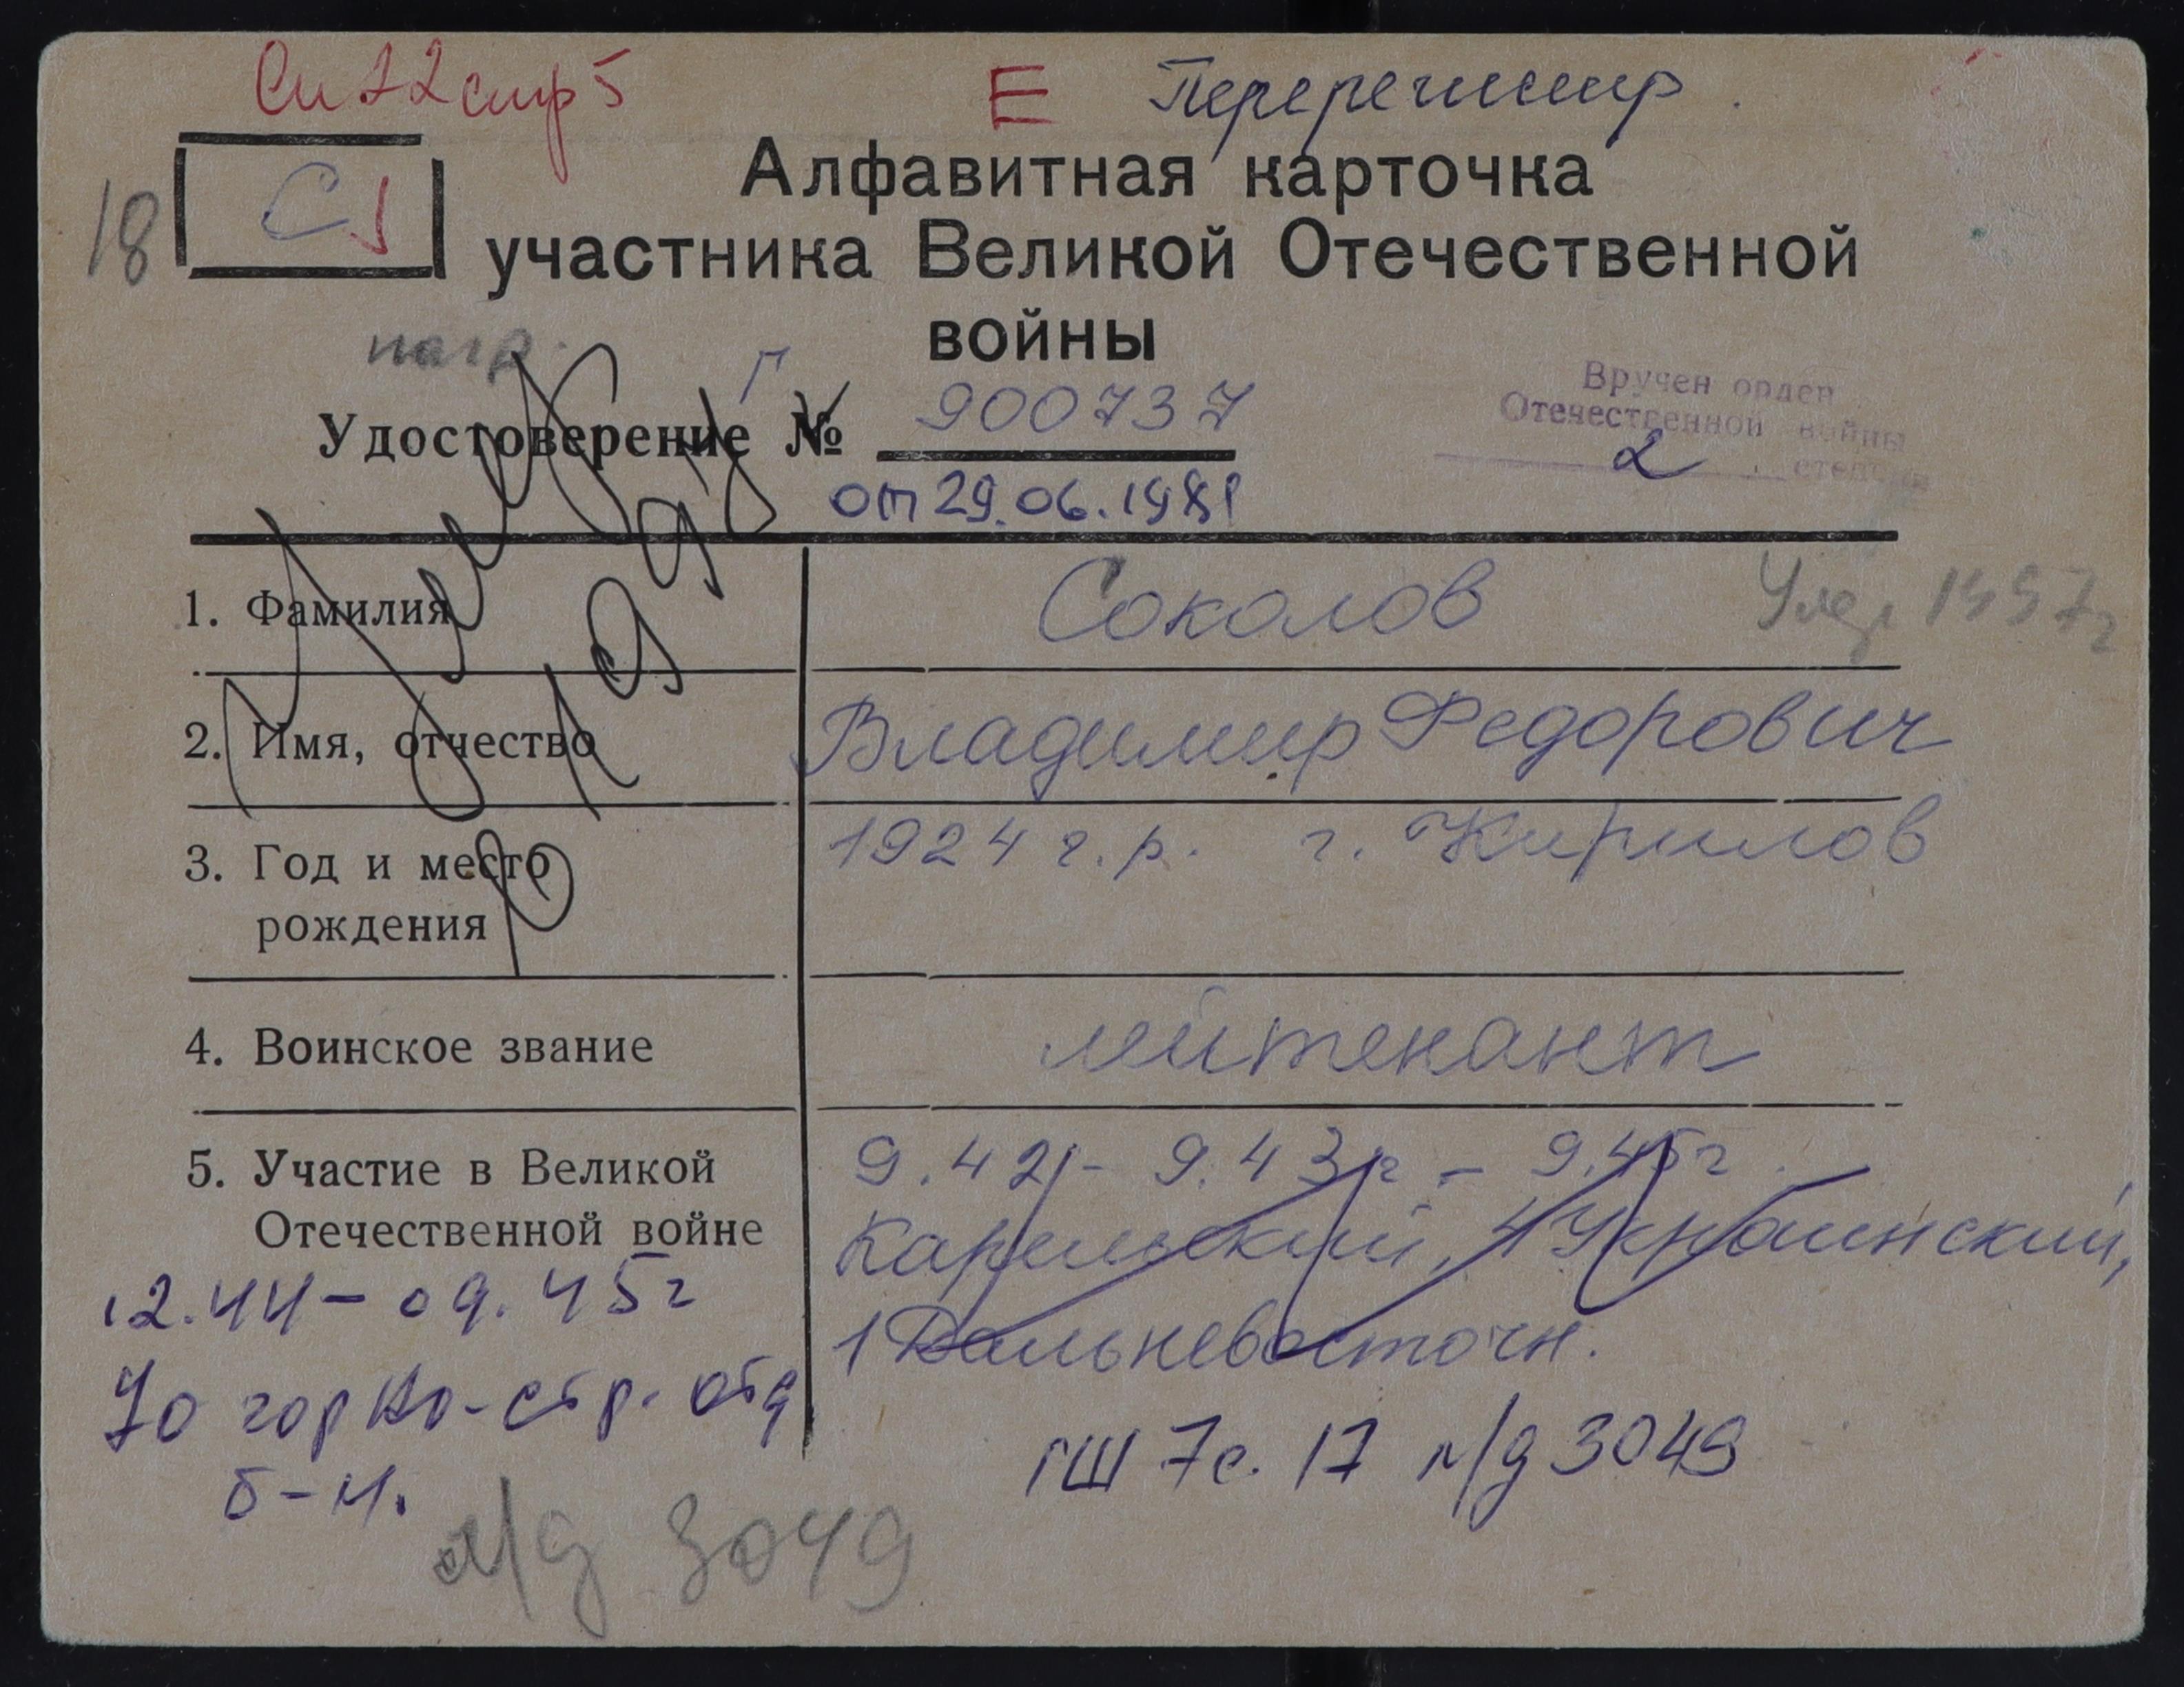 Сп 22 стр 5
Е Перерегистр.
18
С
Алфавитная карточка
участника Великой Отечественной
войны
нагр.
Удостоверение № 900737
Г
от 29.06.1981
Вручен орден
Отечественной войны
2 степени
1. Фамилия
Соколов
1997г
2. Имя, отчество
Владимир Федорович
3. Год и место
рождения
1924 г.р. г. Кирилов
4. Воинское звание
лейтенант
5. Участие в Великой
Отечественной войне
9.42г - 9.43г - 9.45г.
Карельский, 4 Украинский,
1 Дальневосточн.
12.44 - 09.45г
70 горно-стр. отд
б-н.
ГШ 7с. 17 л/д 3049
л/д 3049